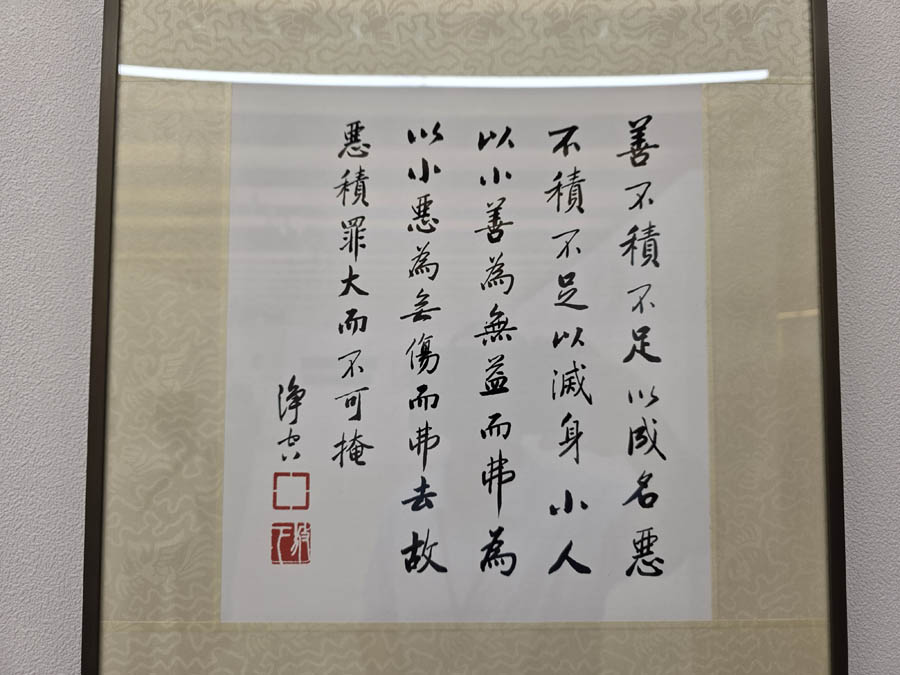 善不積不足以成名惡
不積不足以滅身小人
以小善為無益而弗為
以小惡為无傷而弗去故
惡積罪大而不可掩
淨空